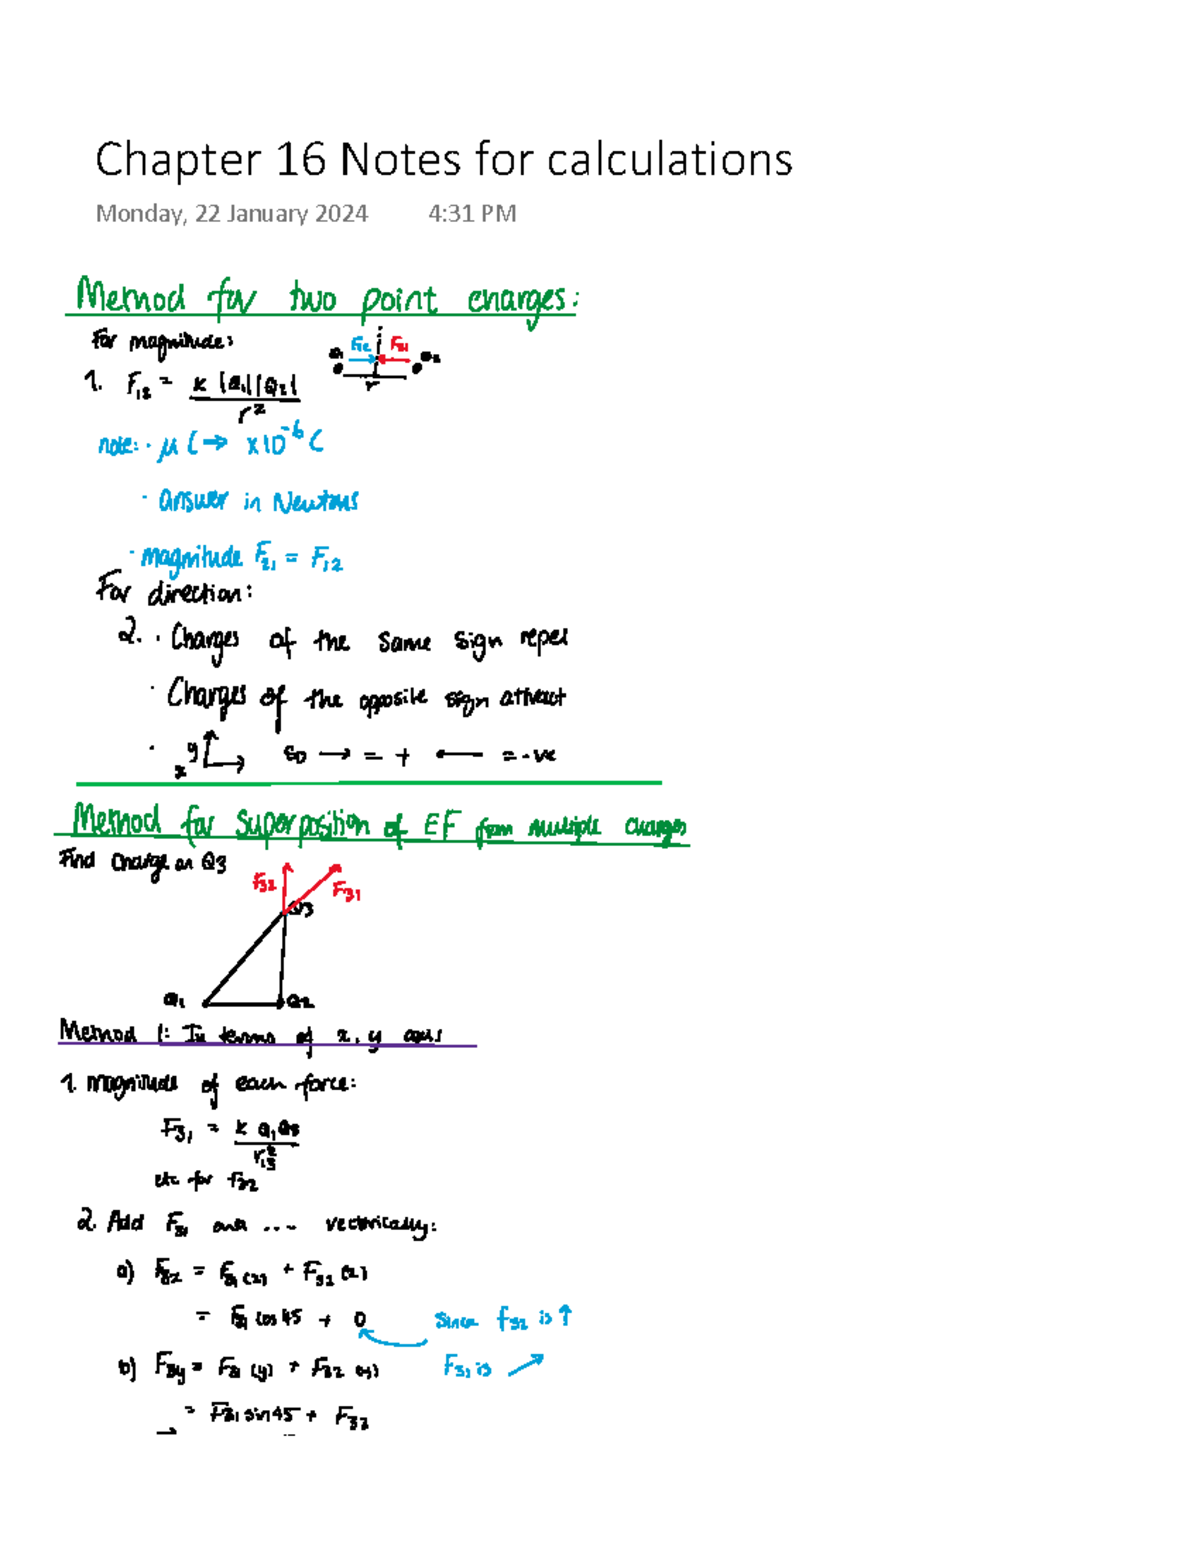 Chapter 16 Notes for calculations
Monday, 22 January 2024 4:31 PM
Method for two point charges:
For magnitude:
Q1 F12 F21 Q2
r
1. F12 = k |Q1| |Q2| / r²
note: · μC → x10⁻⁶ C
· answer in Newtons
· magnitude F21 = F12
For direction:
2. · Charges of the same sign repel
· Charges of the opposite sign attract
· y x so → = + ← = -ve
Method for Superposition of EF from multiple charges
Find Charge on Q3
F32 F31
Q3
Q1 Q2
Method 1: In terms of x, y axis
1. magnitude of each force:
F31 = k Q1Q3 / r13²
etc for F32
2. Add F31 and .... vectorically:
a) F3x = F31(x) + F32(x)
= F31 cos 45 + 0 Since F32 is ↑
b) F3y = F31(y) + F32(y) F31 is ↗
= F31 sin 45 + F32